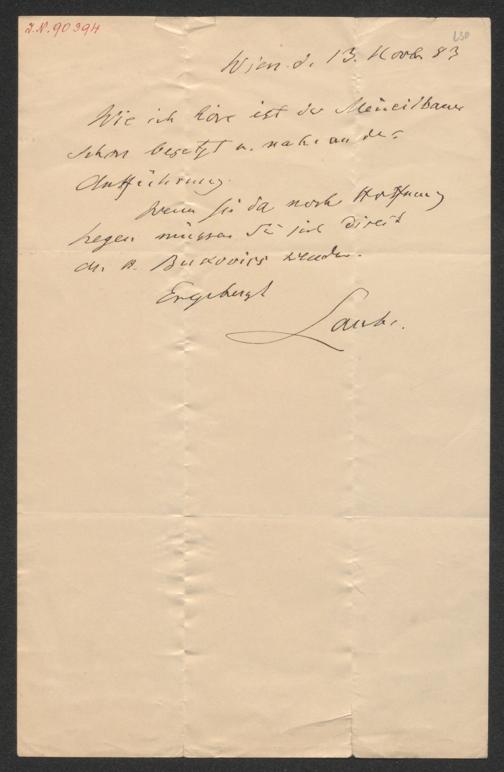 I.N. 90394
Wien d. 13. Novbr 83
Wie ich höre ist der Meineidbauer
schon besetzt u. nahe an der
Aufführung.
Wenn Sie da noch Hoffnung
hegen müssen Sie sich direkt
an H. Bukovics wenden.
Ergebenst
Laube.